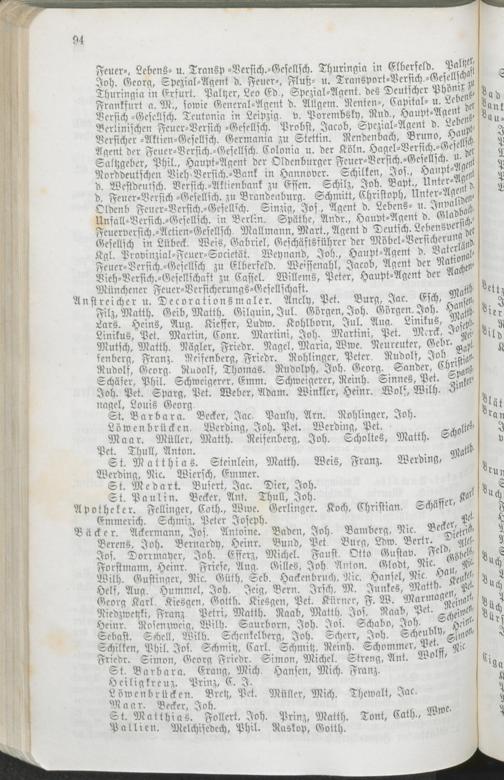 94
Feuer-, Lebens- u. Transp.-Versich.-Gesellsch. Thuringia in Elberfeld. Paltzer,
Joh. Georg, Spezial-Agent d. Feuer-, Fluß- u. Transport-Versich.-Gesellschaft
Thuringia in Erfurt. Paltzer, Leo Ed., Spezial-Agent. des Deutscher Phönix zu
Frankfurt a. M., sowie General-Agent d. Allgem. Renten-, Capital- u. Lebens-
Versich.-Gesellsch. Teutonia in Leipzig. v. Porembsky, Rud., Haupt-Agent der
Berlinischen Feuer-Versich.-Gesellsch. Probst, Jacob, Spezial-Agent d. Lebens-
Versicher.-Aktien-Gesellsch. Germania zu Stettin. Rendenbach, Bruno, Haupt-
Agent der Feuer-Versich.-Gesellsch. Colonia u. der Köln. Hagel-Versich.-Gesellsch.
Saltzgeber, Phil., Haupt-Agent der Oldenburger Feuer-Versich.-Gesellsch. u. der
Norddeutschen Vieh-Versich.-Bank in Hannover. Schilken, Jos., Haupt-Agent
d. Westdeutsch. Versich.-Aktienbank zu Essen. Schilz, Joh. Bapt., Unter-Agent
d. Feuer-Versich.-Gesellsch. zu Brandenburg. Schmitt, Christoph, Unter-Agent d.
Oldenb. Feuer-Versich.-Gesellsch. Sinzig, Jos., Agent d. Lebens- u. Invaliden-
Unfall-Versich.-Gesellsch. in Berlin. Späthe, Andr., Haupt-Agent d. Gladbach.
Feuerversich.-Actien-Gesellsch. Mallmann, Mart., Agent d. Deutsch. Lebensversich.-
Gesellsch. in Lübeck. Weis, Gabriel, Geschäftsführer der Möbel-Versicherung der
Kgl. Provinzial-Feuer-Societät. Weynand, Joh., Haupt-Agent d. Vaterländ.
Feuer-Versich.-Gesellsch. zu Elberfeld. Weissenahl, Jacob, Agent der National-
Vieh-Versich.-Gesellschaft zu Cassel. Willems, Peter, Haupt-Agent der Aachen-
Münchener Feuer-Versicherungs-Gesellschaft.
Anstreicher u. Decorationsmaler. Burg, Jac. Esch, Matth.
Filz, Matth. Geib, Matth. Gilquin, Jul. Görgen, Joh. Görgen, Joh. Hansen,
Lars. Heins, Aug. Kieffer, Ludw. Kohlborn, Jul. Aug. Linikus, Matth.
Linikus, Pet. Martin, Conr. Martini, Joh. Martini, Pet. Merck, Joseph.
Mutsch, Matth. Nägler, Friedr. Nagel, Maria, Wwe. Neureuter, Gebr.
Reisenberg, Friedr. Rohlinger, Peter. Rudolf, Joh.
Rudolf, Georg. Rudolf, Thomas. Rudolph, Joh. Georg. Sander, Christian.
Schäfer, Phil. Schweigerer, Emm. Schweigerer, Reinh. Sinnes, Pet.
Joh. Pet. Sparg, Pet. Weber, Adam. Winkler, Heinr. Wolf, Wilh. Zinken-
nagel, Louis Georg.
St. Barbara. Becker, Jac. Pauly, Arn. Rohlinger, Joh.
Löwenbrücken. Werding, Joh. Pet. Werding, Pet.
Maar. Müller, Matth. Reisenberg, Joh. Scholtes, Matth. Scholtes,
Pet. Thull, Anton.
St. Matthias. Steinlein, Matth. Weis, Franz. Werding, Matth.
Werding, Nic. Wiersch, Emmer.
St. Medart. Dier, Joh.
St. Paulin. Becker, Ant. Thull, Joh.
Apotheker. Fellinger, Cath., Wwe. Gerlinger. Koch, Christian. Schäffer, Karl
Emmerich. Schmiz, Peter Joseph.
Bäcker. Ackermann, Jos. Antoine. Baden, Joh. Bamberg, Nic. Becker, Pet.
Berens, Joh. Bernardy, Heinr. Bund, Pet. Burg, Ldw. Bertr. Dietrich,
Jos. Dorrmayer, Joh. Efferz, Michel. Faust. Otto Gustav. Feld,
Forstmann, Heinr. Friese, Aug. Gilles, Joh. Anton. Glodt, Nic.
Wilh. Gustinger, Nic. Güth, Seb. Hackenbruch, Nic. Hansel, Nic. Hau, Nic.
Helf, Aug. Hummel, Joh. Jeig, Bern. Irsch, M. Junkes, Matth. Keuker,
Georg Karl. Kiesgen, Gotth. Kiesgen, Pet. Kürner, F. W. Marmagen, Pet.
Niedzwetzki, Franz. Petri, Matth. Raab, Matth. Jos. Raab, Pet. Reinard,
Heinr. Rosenzweig, Wilh. Saurborn, Joh. Jos. Schabo, Joh.
Sebast. Schell, Wilh. Schenkelberg, Joh. Scherr, Joh. Scheubly, Heinr.
Schilken, Phil. Jos. Schmitz, Carl. Schmitz, Reinh. Schommer, Pet. Simon,
Friedr. Simon, Georg Friedr. Simon, Michel. Streng, Ant. Wolff, Nic
St. Barbara. Crang, Mich. Hansen, Mich. Franz.
Heiligkreuz. Prinz, C. J.
Löwenbrücken. Bretz, Pet. Müller, Mich. Thewalt, Jac.
Maar. Becker, Joh.
St. Matthias. Follert, Joh. Prinz, Matth. Tont, Cath., Wwe.
Pallien. Melchisedech, Phil. Raskop, Gotth.